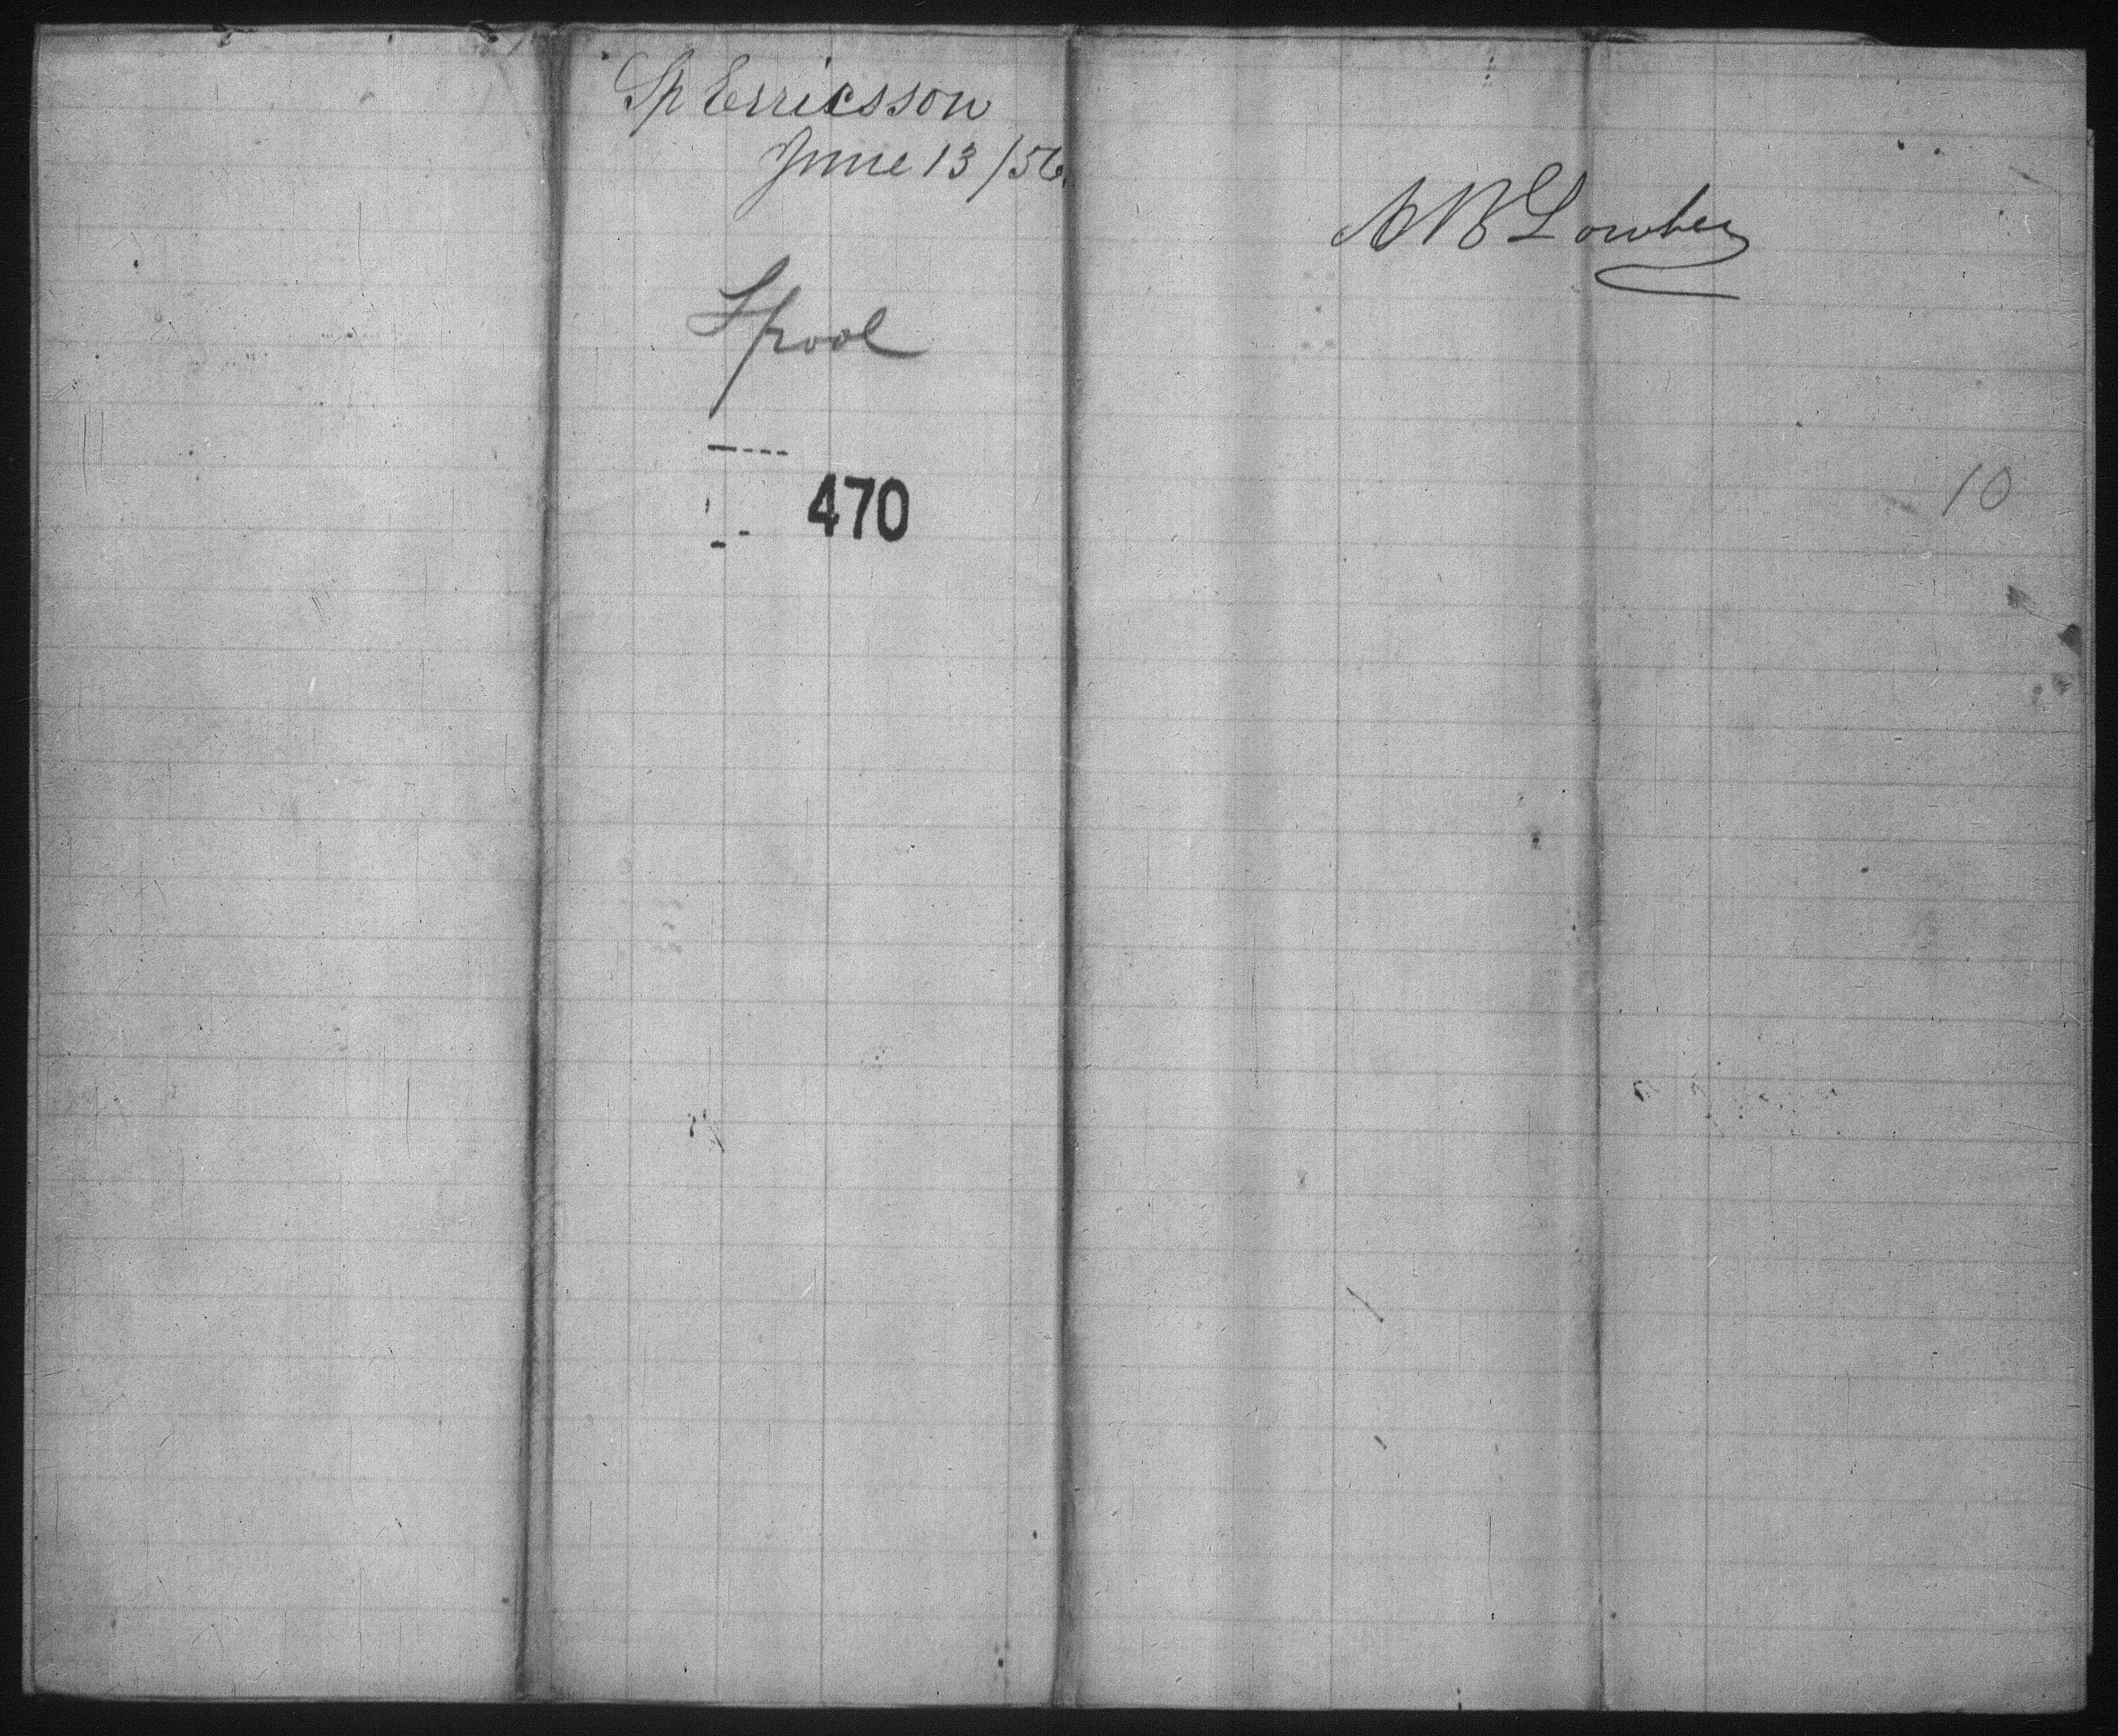 Sp Erricsson
June 13/56
Lpool
470
A B Lowber
10